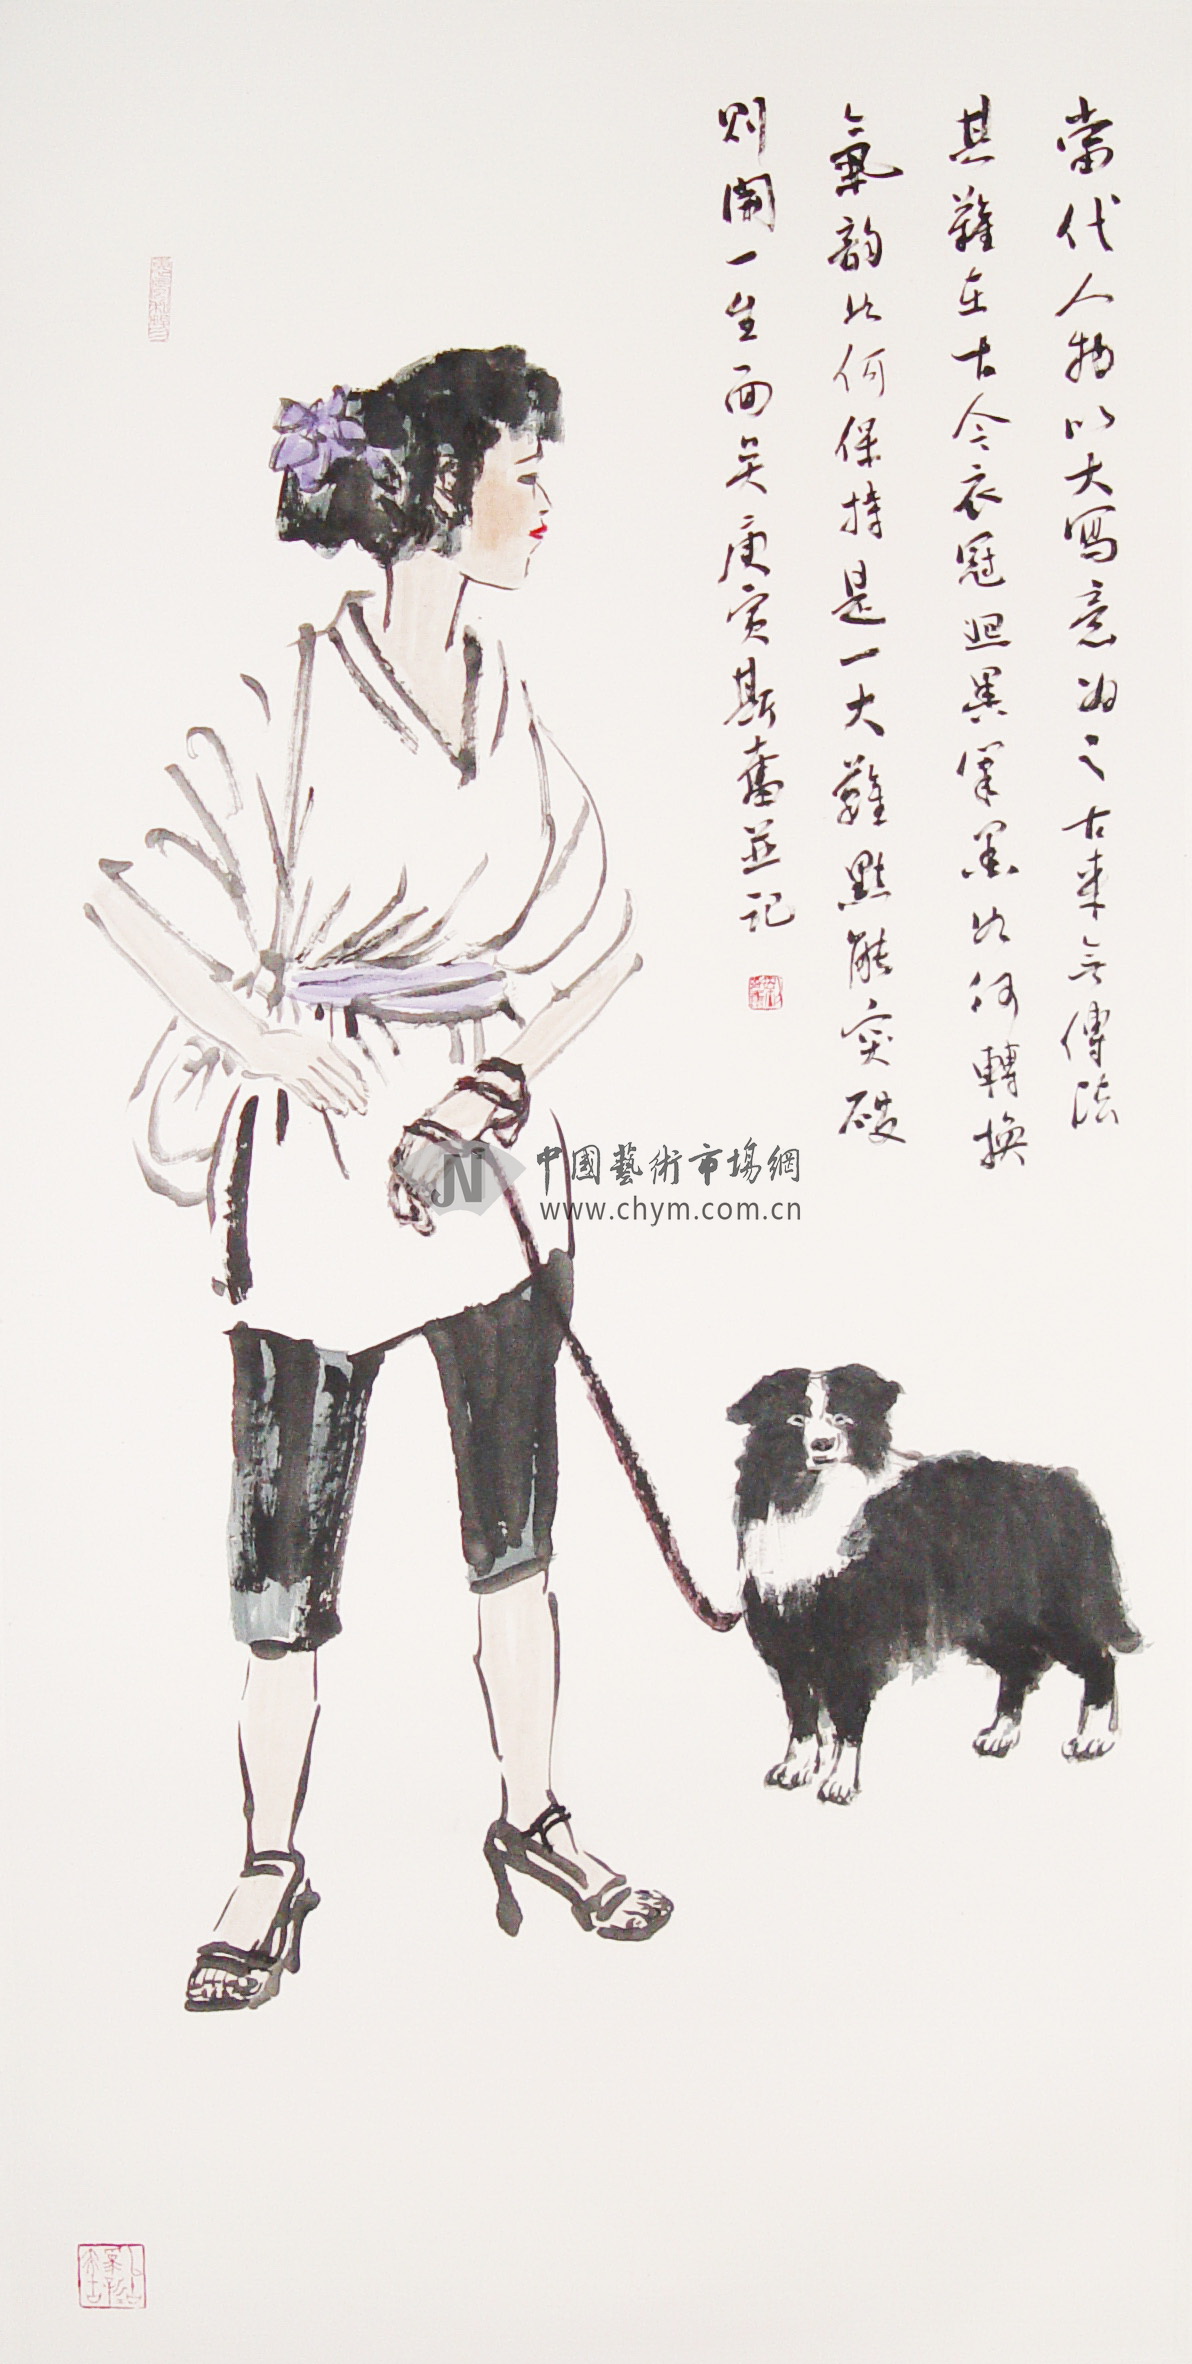 當代人物以大寫意為之古來無傳法
其難在古今衣冠迥異筆墨如何轉換
氣韵如何保持是一大難點能突破
則開一生面矣庚寅斯奮並記
中國藝術市場網
www.chym.com.cn